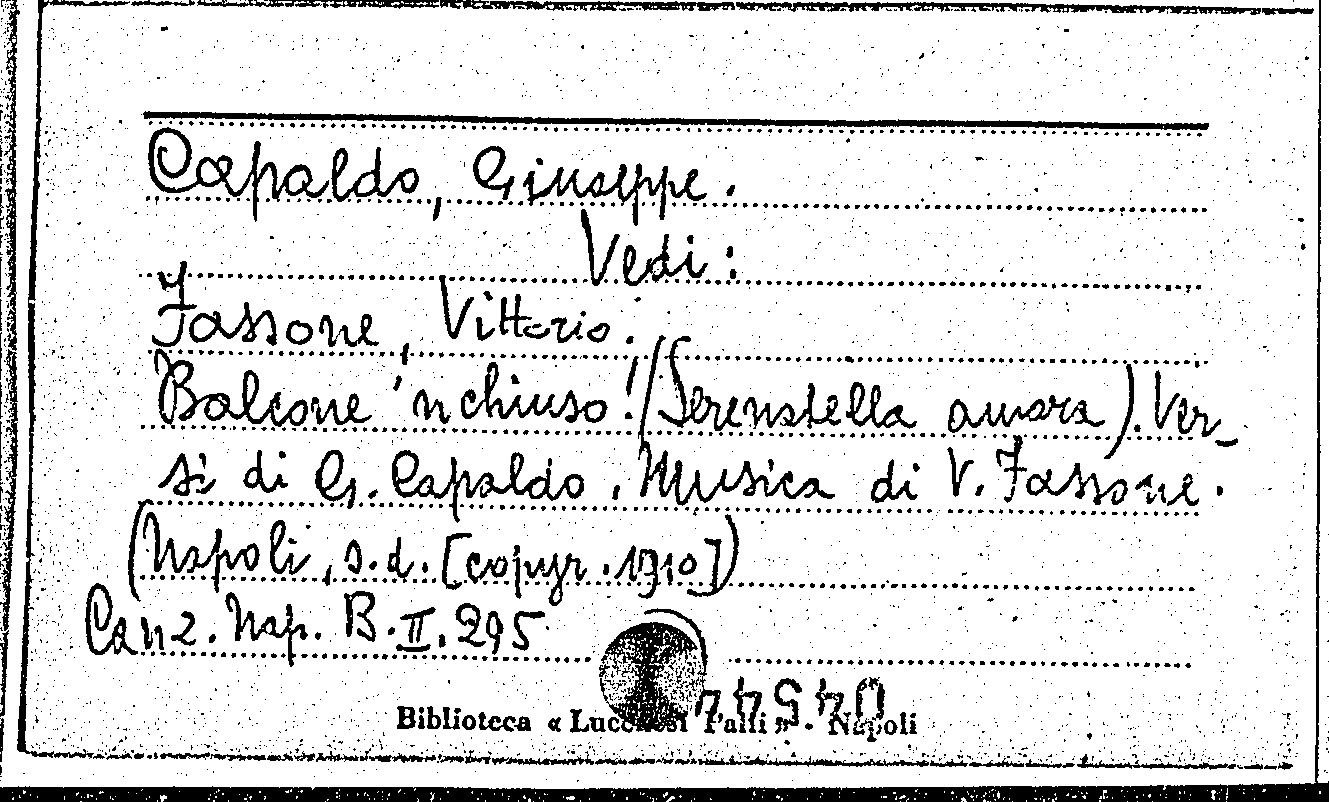 Capaldo, Giuseppe.
Vedi:
Fassone, Vittorio.
Balcone 'nchiuso! (Serenatella amara). Ver-
si di G. Capaldo. Musica di V. Fassone.
(Napoli, s.d. [copyr. 1910])
Canz. Nap. B. II. 295
Biblioteca « Lucchesi Palli » - Napoli